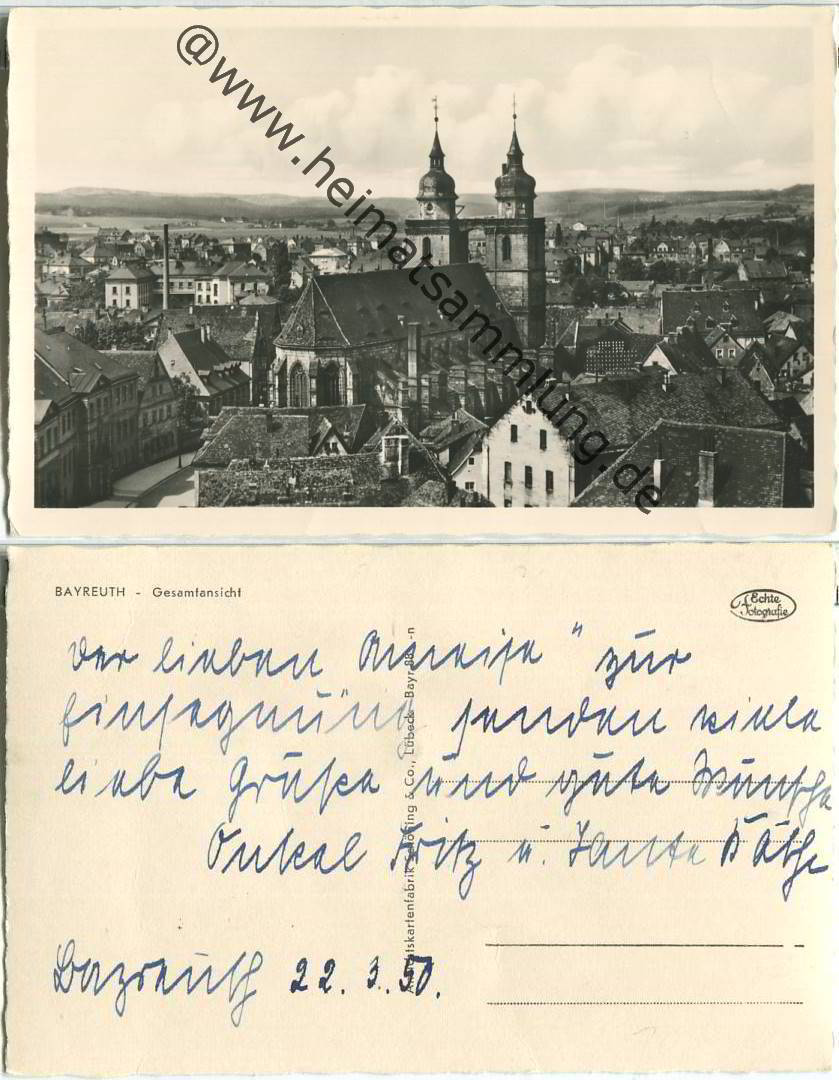 @www.heimatsammlung.de
BAYREUTH - Gesamtansicht
Echte
Fotografie
Der lieben Anneise " zur
Einsegnung senden viele
liebe Grüße und gute Wünsche
Onkel Fritz u. Tante Käthe
Bayreuth 22. 3. 50.
Ansichtskartenfabrik Schöning & Co., Lübeck Bayr 88 -n